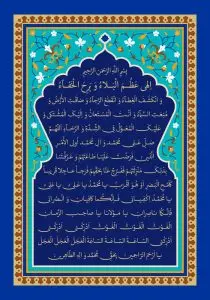 بِسْمِ اللَّهِ الرَّحْمٰنِ الرَّحِيمِ
اِلٰهِی عَظُمَ الْبَلاَءُ وَ بَرِحَ الْخَفَاءُ
وَ انْكَشَفَ الْغِطَاءُ وَ انْقَطَعَ الرَّجَاءُ وَ ضَاقَتِ الْاَرْضُ وَ
مُنِعَتِ السَّمَاءُ وَ اَنْتَ الْمُسْتَعَانُ وَ اِلَيْكَ الْمُشْتَكٰى وَ
عَلَيْكَ الْمُعَوَّلُ فِی الشِّدَّةِ وَ الرَّخَاءِ اَللّٰهُمَّ
صَلِّ عَلٰى مُحَمَّدٍ وَ آلِ مُحَمَّدٍ اُولِی الْاَمْرِ
الَّذِينَ فَرَضْتَ عَلَيْنَا طَاعَتَهُمْ وَ عَرَّفْتَنَا
بِذٰلِكَ مَنْزِلَتَهُمْ فَفَرِّجْ عَنَّا بِحَقِّهِمْ فَرَجاً عَاجِلاً قَرِيباً
كَلَمْحِ الْبَصَرِ اَوْ هُوَ اَقْرَبُ يَا مُحَمَّدُ يَا عَلِیُّ يَا عَلِیُّ
يَا مُحَمَّدُ اِكْفِيَانِی فَاِنَّكُمَا كَافِيَانِ وَ انْصُرَانِی
فَاِنَّكُمَا نَاصِرَانِ يَا مَوْلَانَا يَا صَاحِبَ الزَّمَانِ
الْغَوْثَ الْغَوْثَ الْغَوْثَ اَدْرِكْنِی اَدْرِكْنِی
اَدْرِكْنِی السَّاعَةَ السَّاعَةَ السَّاعَةَ الْعَجَلَ الْعَجَلَ الْعَجَلَ
يَا اَرْحَمَ الرَّاحِمِينَ بِحَقِّ مُحَمَّدٍ وَ آلِهِ الطَّاهِرِينَ